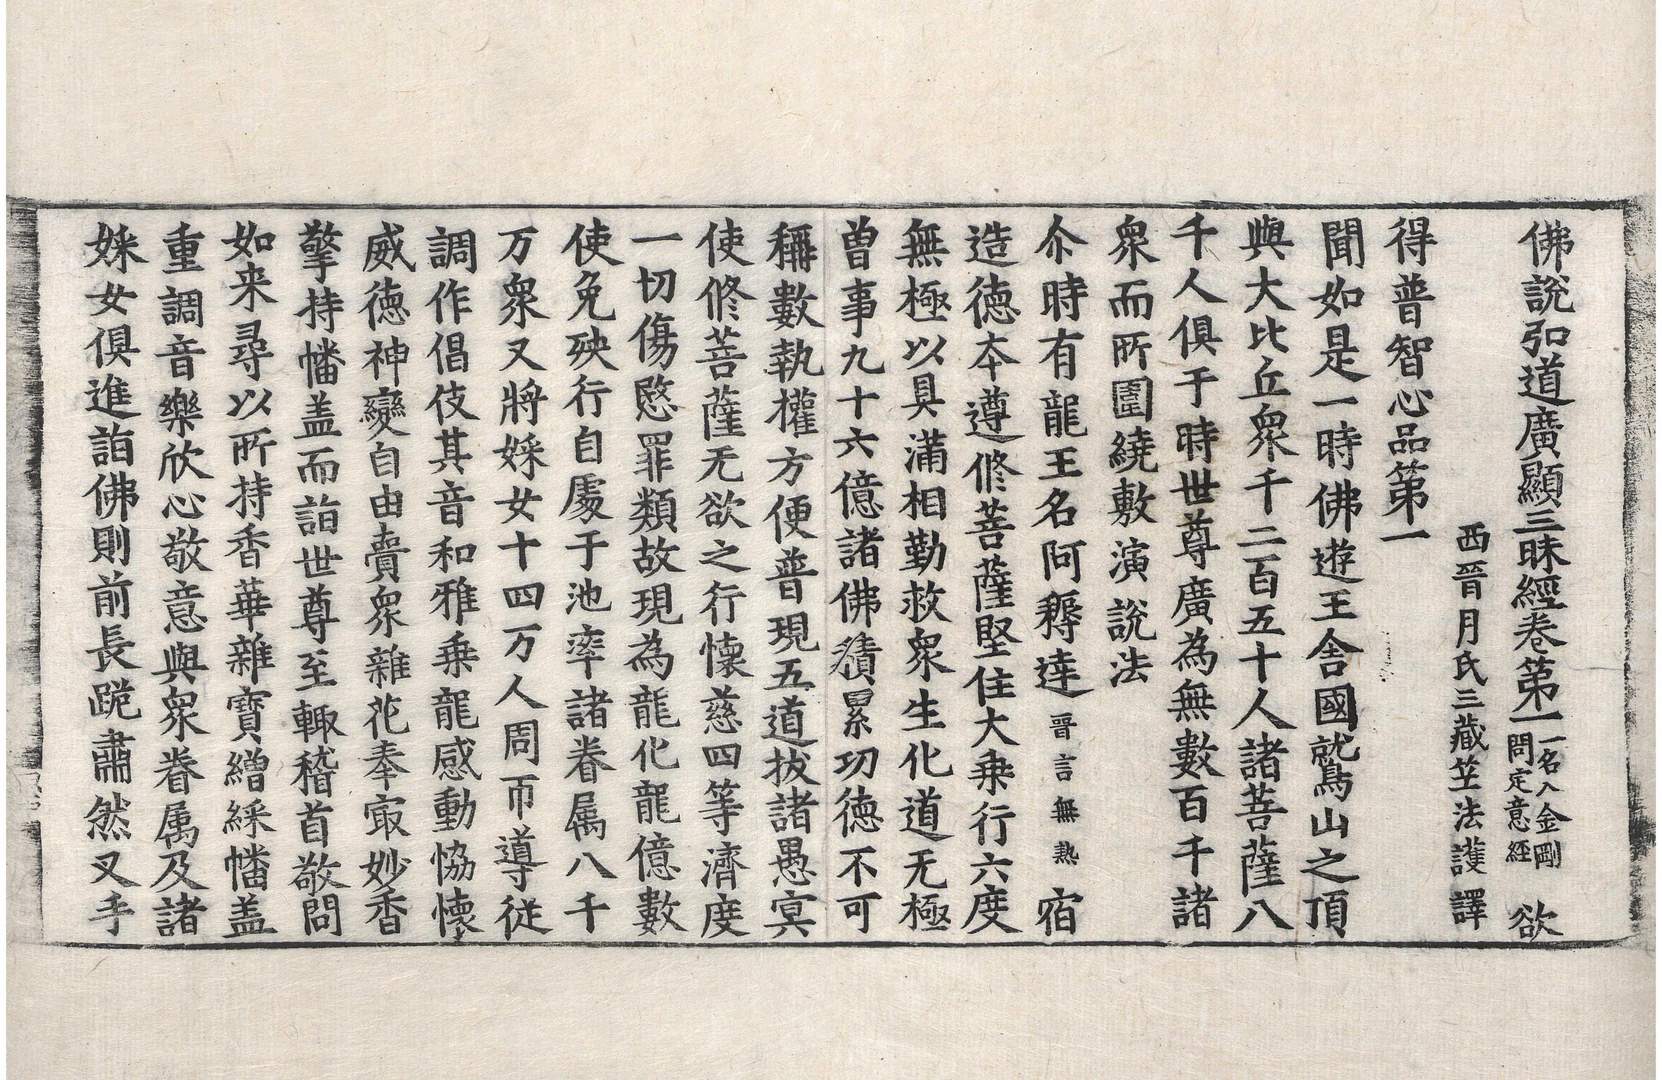 佛說弘道廣顯三昧經卷第一 一名入金剛問定意經 欲
西晉月氏三藏竺法護譯
得普智心品第一
聞如是一時佛遊王舍國就鷲山之頂
與大比丘衆千二百五十人諸菩薩八
千人俱于時世尊廣為無數百千諸
衆而所圍繞敷演說法
尒時有龍王名阿耨達 晉言無熱 宿
造德本遵修菩薩堅住大乗行六度
無極以具滿相勤救衆生化道无極
曽事九十六億諸佛積累功德不可
稱數執權方便普現五道拔諸愚冥
使修菩薩无欲之行懷慈四等濟度
一切傷愍罪類故現為龍化龍億數
使免殃行自處于池率諸眷属八千
万衆又將婇女十四万人周帀導従
調作倡伎其音和雅乗龍感動恊懷
威德神變自由賷衆雜花奉㝡妙香
擎持幡盖而詣世尊至輙稽首敬問
如来尋以所持香華雜寶繒綵幡盖
重調音樂欣心敬意與衆眷属及諸
婇女俱進詣佛則前長跪肅然叉手